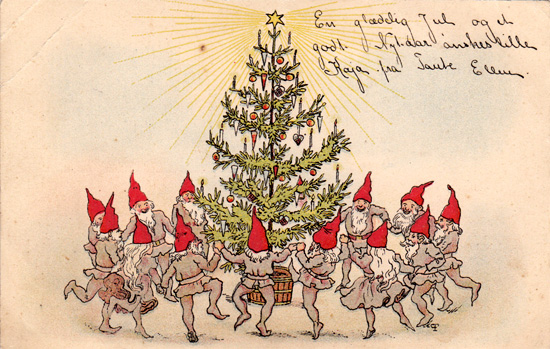 En glædelig Jul og et
godt Nytaar ønskes lille
Kaja fra Tante Ellen.